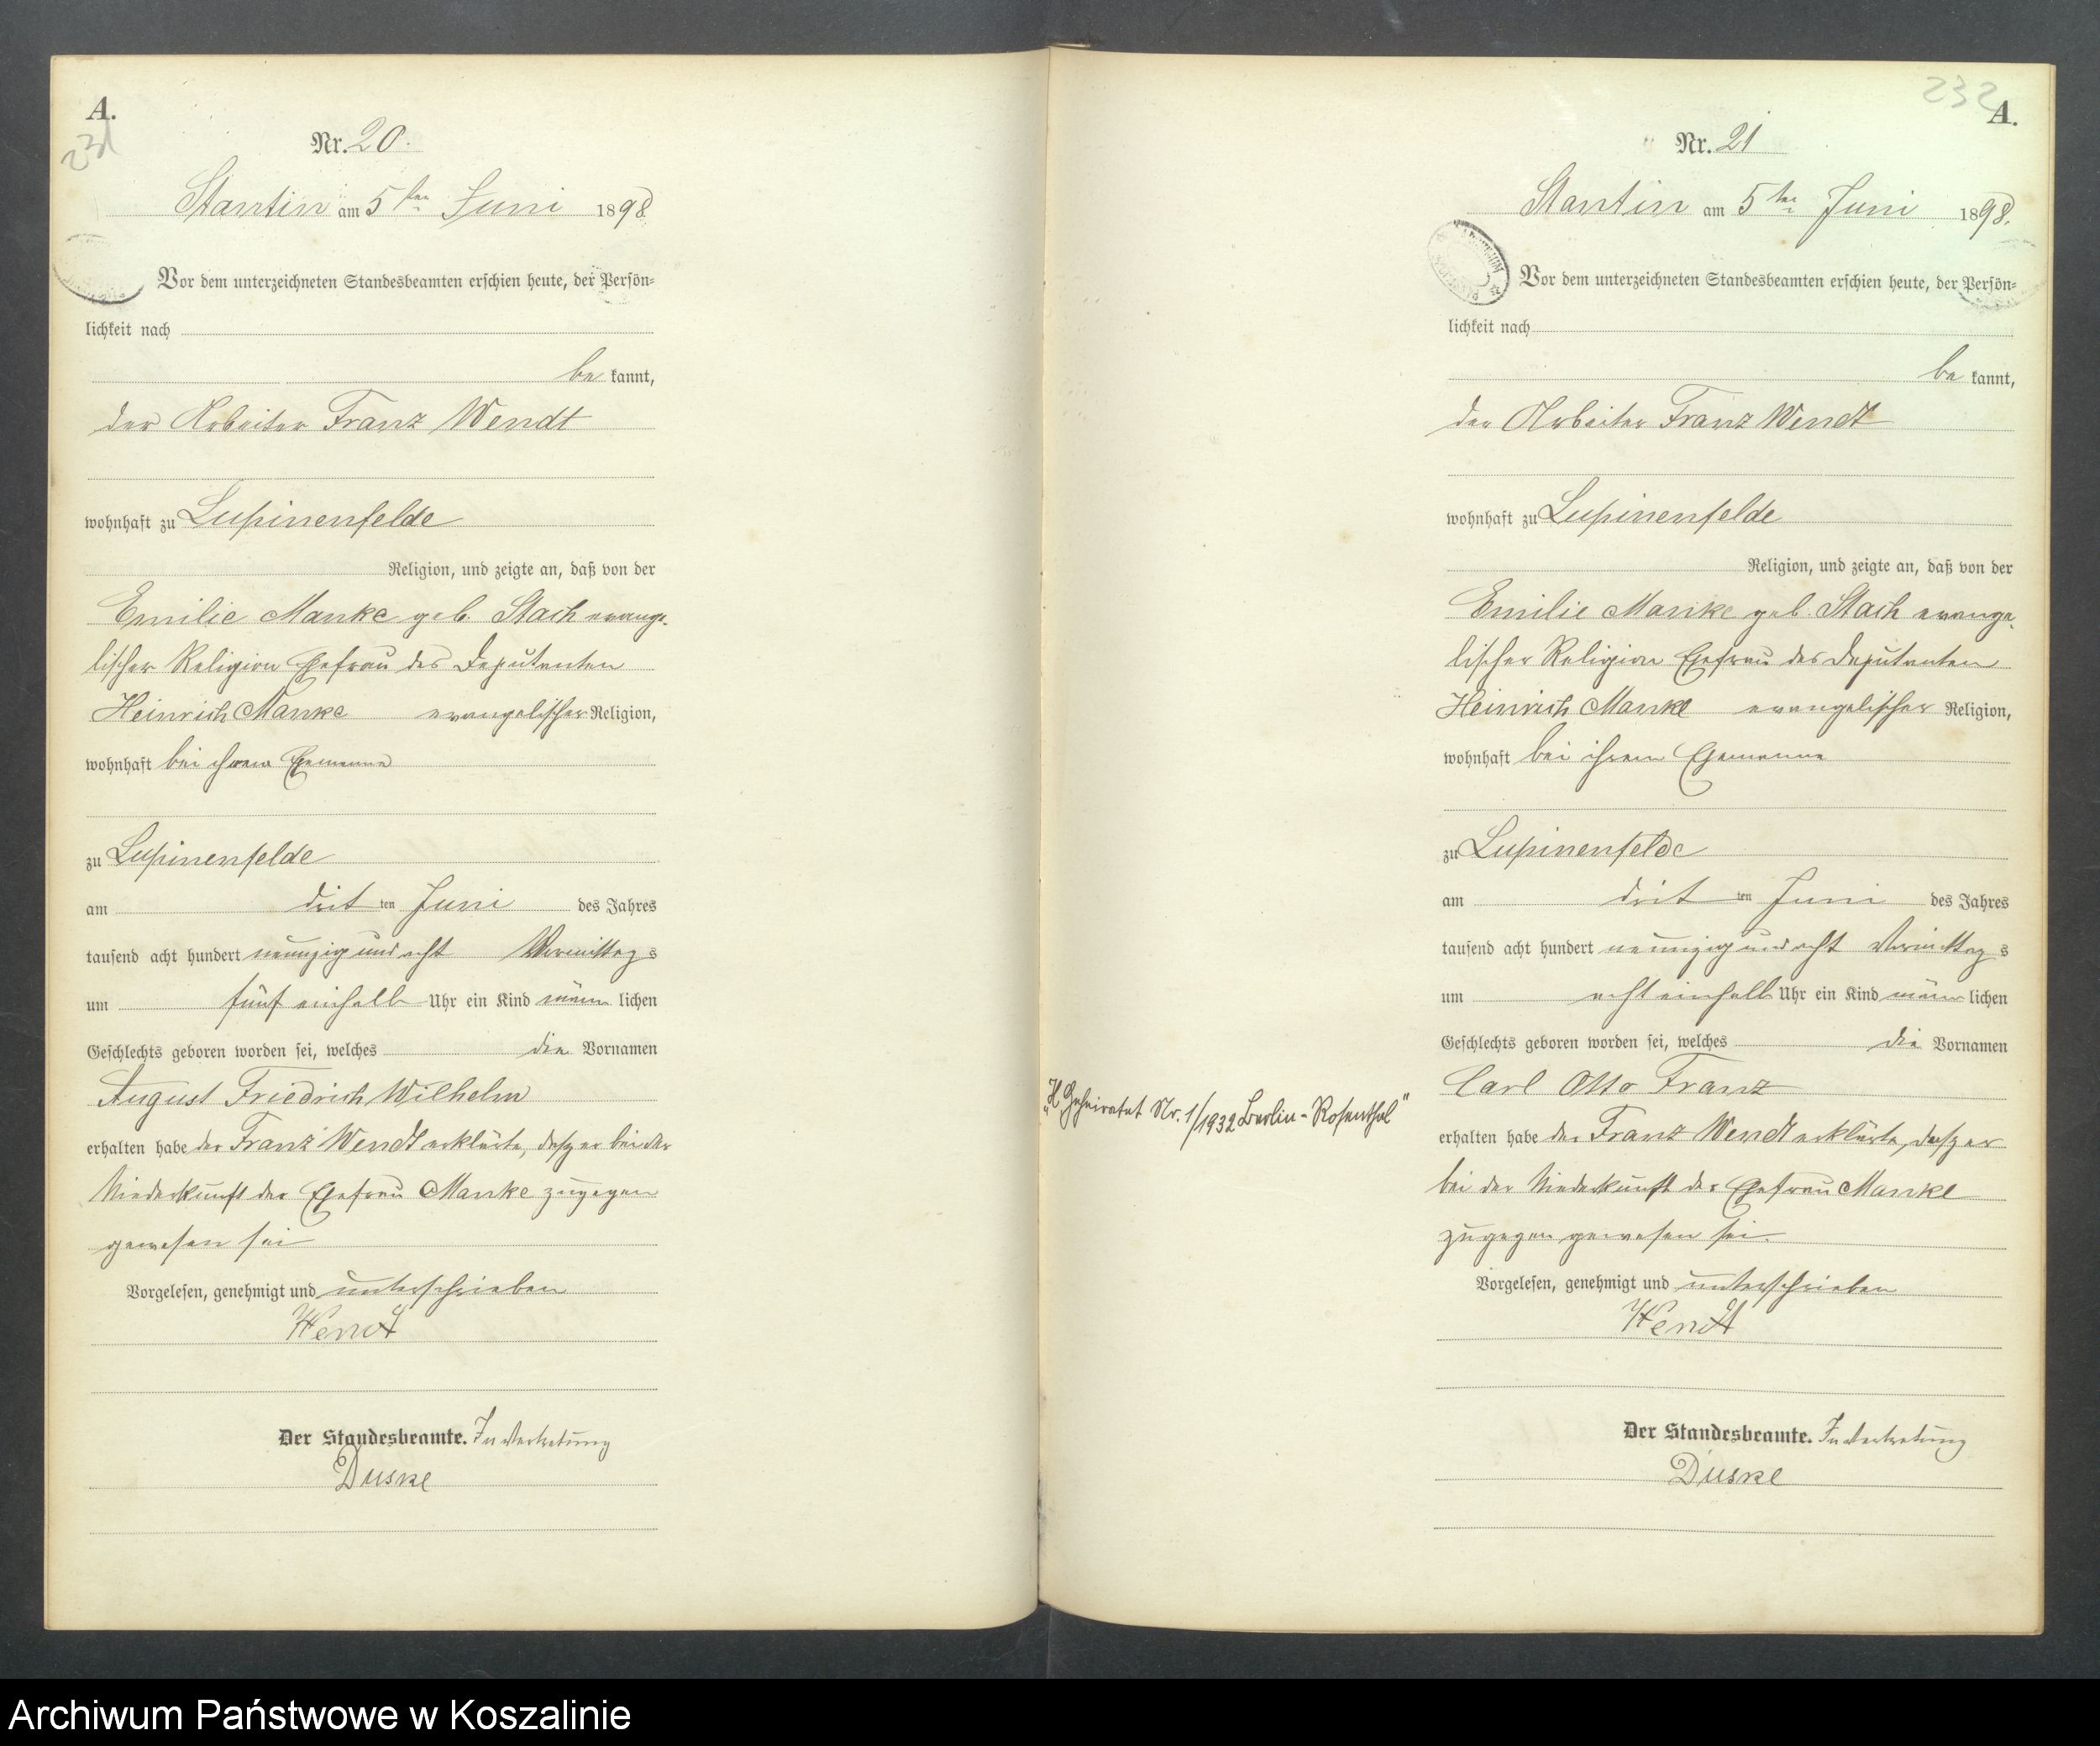 A.
231
Nr. 20.
Stantin am 5ten Juni 1898
Vor dem unterzeichneten Standesbeamten erschien heute, der Persön=
lichkeit nach
be kannt,
der Arbeiter Franz Wendt
wohnhaft zu Lupinenfelde
Religion, und zeigte an, daß von der
Emilie Manke geb. Stach evange-
lischer Religion Ehefrau des Deputanten
Heinrich Manke evangelischer Religion,
wohnhaft bei ihrem Ehemanne
zu Lupinenfelde
am drit ten Juni des Jahres
tausend acht hundert neunzig und acht Vormittag s
um fünf einhalb Uhr ein Kind männ lichen
Geschlechts geboren worden sei, welches die Vornamen
August Friedrich Wilhelm
erhalten habe der Franz Wendt erklärte, daß er bei der
Niederkunft der Ehefrau Manke zugegen
gewesen sei
Vorgelesen, genehmigt und unterschrieben
Wendt
Der Standesbeamte. In Vertretung
Duske
232
A.
Nr. 21
Stantin am 5ten Juni 1898.
Vor dem unterzeichneten Standesbeamten erschien heute, der Persön=
lichkeit nach
be kannt,
der Arbeiter Franz Wendt
wohnhaft zu Lupinenfelde
Religion, und zeigte an, daß von der
Emilie Manke geb. Stach evange-
lischer Religion Ehefrau des Deputanten
Heinrich Manke evangelischer Religion,
wohnhaft bei ihrem Ehemanne
zu Lupinenfelde
am drit ten Juni des Jahres
tausend acht hundert neunzig und acht Vormittag s
um acht einhalb Uhr ein Kind männ lichen
Geschlechts geboren worden sei, welches die Vornamen
Carl Otto Franz
"H Geheiratet Nr. 1/1932 Berlin-Rosenthal"
erhalten habe der Franz Wendt erklärte, daß er
bei der Niederkunft der Ehefrau Manke
zugegen gewesen sei.
Vorgelesen, genehmigt und unterschrieben
Wendt
Der Standesbeamte. In Vertretung
Duske
Archiwum Państwowe w Koszalinie